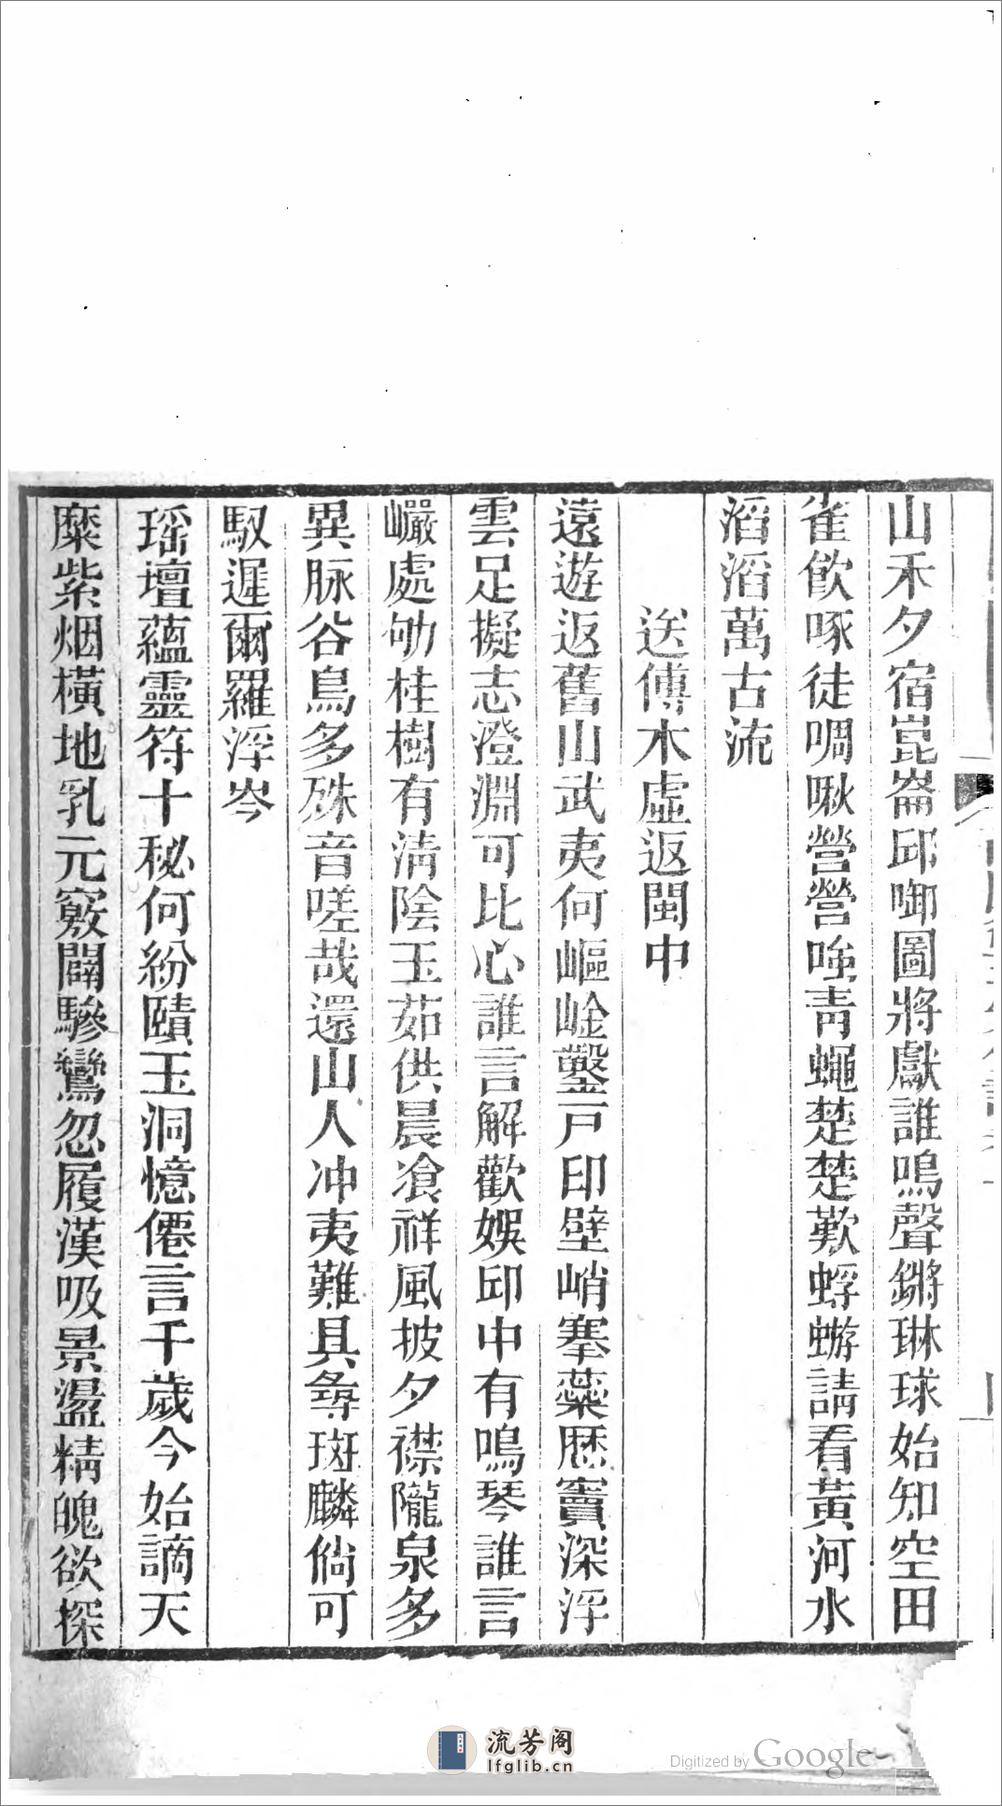 山禾夕宿崑崙邱啣圖將獻誰鳴聲鏘琳球始知空田
雀飮啄徒啁啾營營吨靑蠅楚楚歎蜉蝣請看黃河水
滔滔萬古流
送傅木虛返閩中
遠遊返舊山武夷何嶇崯鑿戸印壁峭搴蘂歴竇深浮
雲足擬志澄淵可比心誰言解歡娛邱中有鳴琴誰言
巗處劬桂樹有淸陰玉茹供晨飡祥風披夕襟隴泉多
異脉谷鳥多殊音嗟哉還山人冲夷難具尋斑麟倘可
馭遲爾羅浮岑
瑶壇蘊靈符十秘何紛賾玉洞憶僊言千歲今始謫天
糜紫烟橫地乳元竅闢驂鸞忽履漢吸景盪精魄欲探
流芳阁
lfglib.cn
Digitized by Google